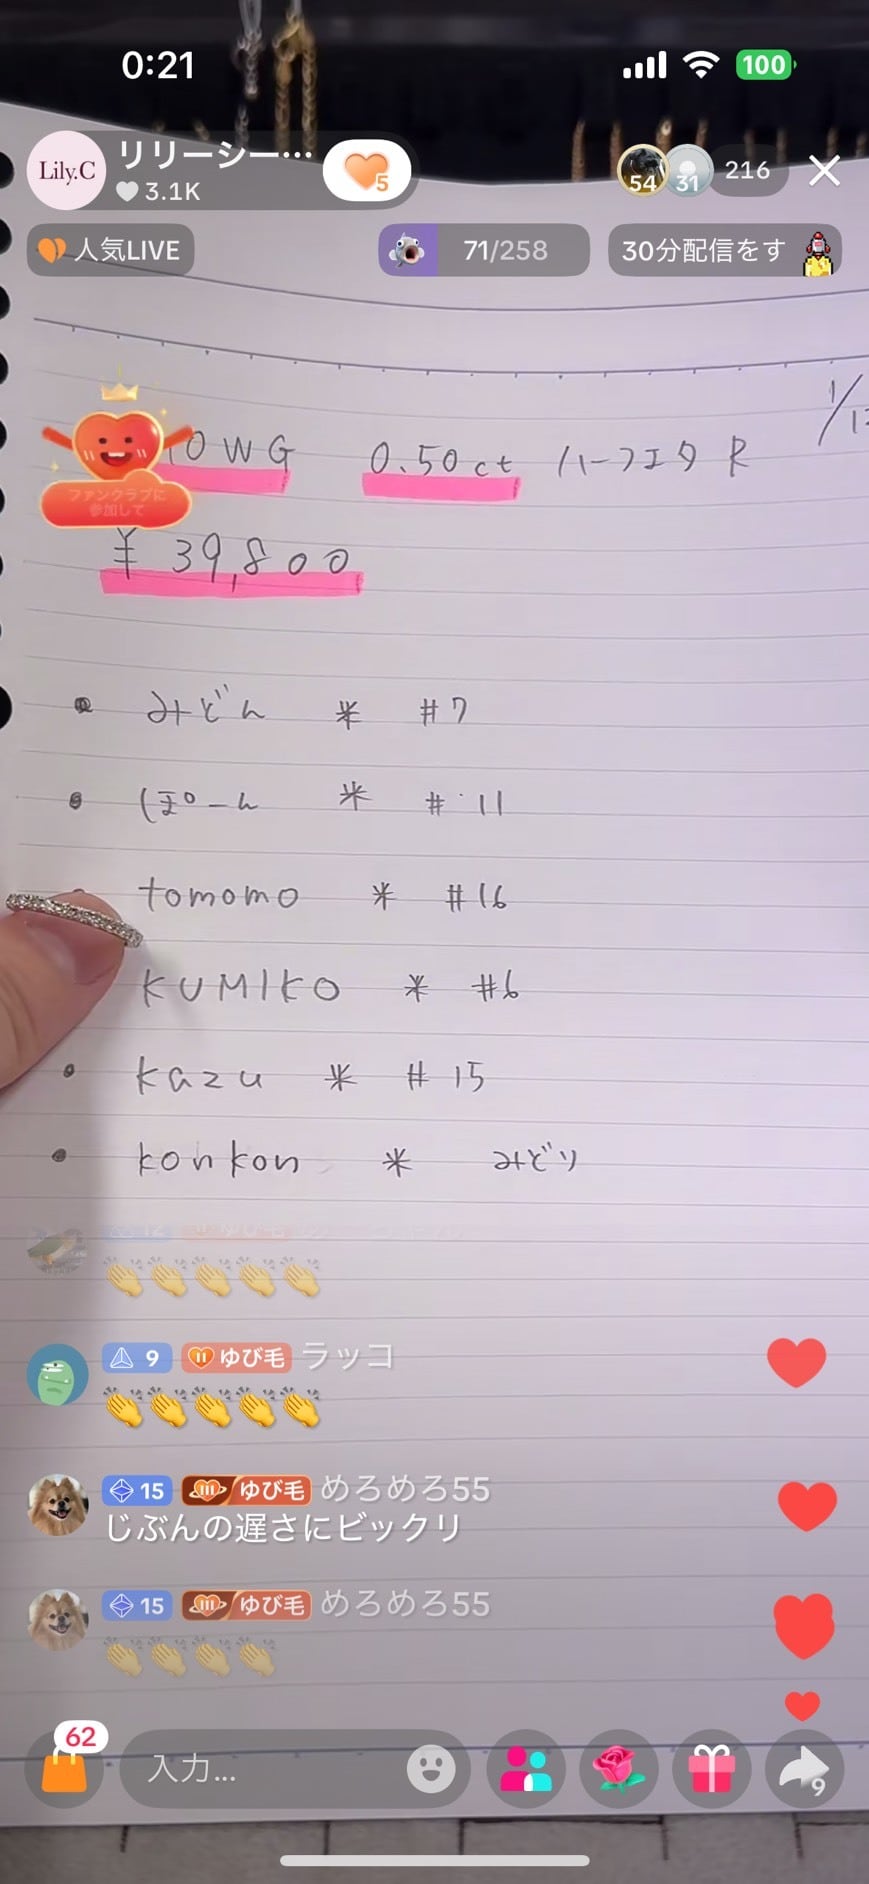 0:21
100
Lily.C
リリーシー…
3.1K
5
54
31
216
人気LIVE
71/258
30分配信をす
1/1
10WG 0.50ct ハーフエタR
ファンクラブに
参加して
¥39,800
みどん * #7
ぽーん * #11
tomomo * #16
KUMIKO * #6
kazu * #15
konkon * みどり
9 II ゆび毛 ラッコ
👏👏👏👏👏
15 III ゆび毛 めろめろ55
じぶんの遅さにビックリ
15 III ゆび毛 めろめろ55
👏👏👏👏
62
入力...
9